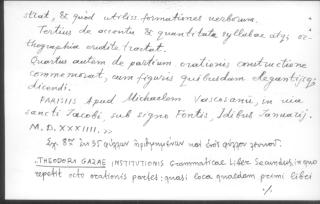 strat, & quòd utiliss. formationes verborum.
Tertius de accentu & quantitate syllabae atq; or-
thographia erudite tractat.
Quartus autem de partium orationis constructione
commemorat, cum figuris quibusdam elegantijsq;
dicendi.
PARISIIS Apud Michaelem Vascosanū, in via
sancti Iacobi, sub signo Fontis, Idibus Ianuarij.
M. D. XXXIIII. >>
Σχ. 8ον ἐκ 35 φύλλων ἠριθμημένων καὶ ἑνὸς φύλλου
.THEODORI GAZAE INSTITVTIONIS Grammaticae Liber Secundus, in quo
repetit octo orationis partes: quasi loca quaedam primi libri
./.